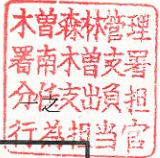 木曽森林管理
署南木曽支署
分任支出負担
行為担当官